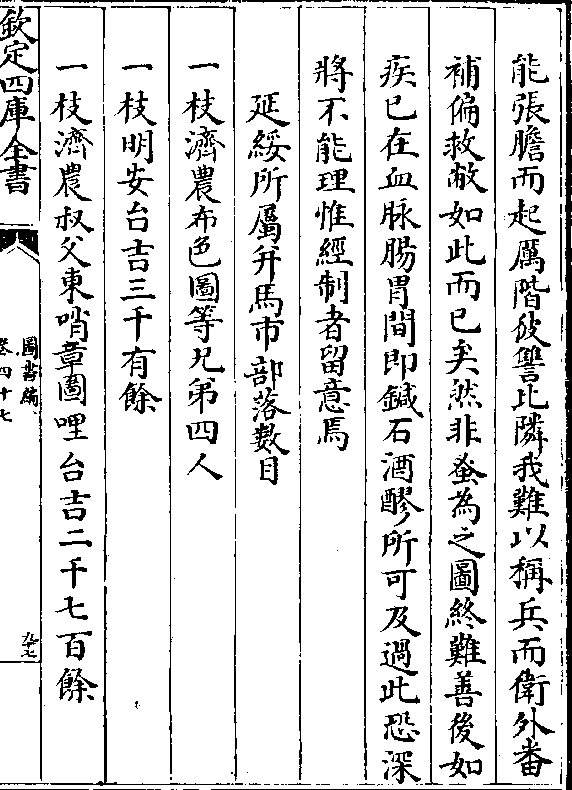 能張膽而起厲階彼讐比隣我難以稱兵而衛外畨
補偏救敝如此而已矣然非蚤為之圖終難善後如
疾已在血脉腸胃間即鍼石酒醪所可及過此恐深
將不能理惟經制者留意焉
延綏所屬并馬市部落數目
一枝濟農布色圖等兄弟四人
一枝明安台吉三千有餘
一枝濟農叔父東哨章圖哩台吉二千七百餘
欽定四庫全書
圖書編
卷四十七